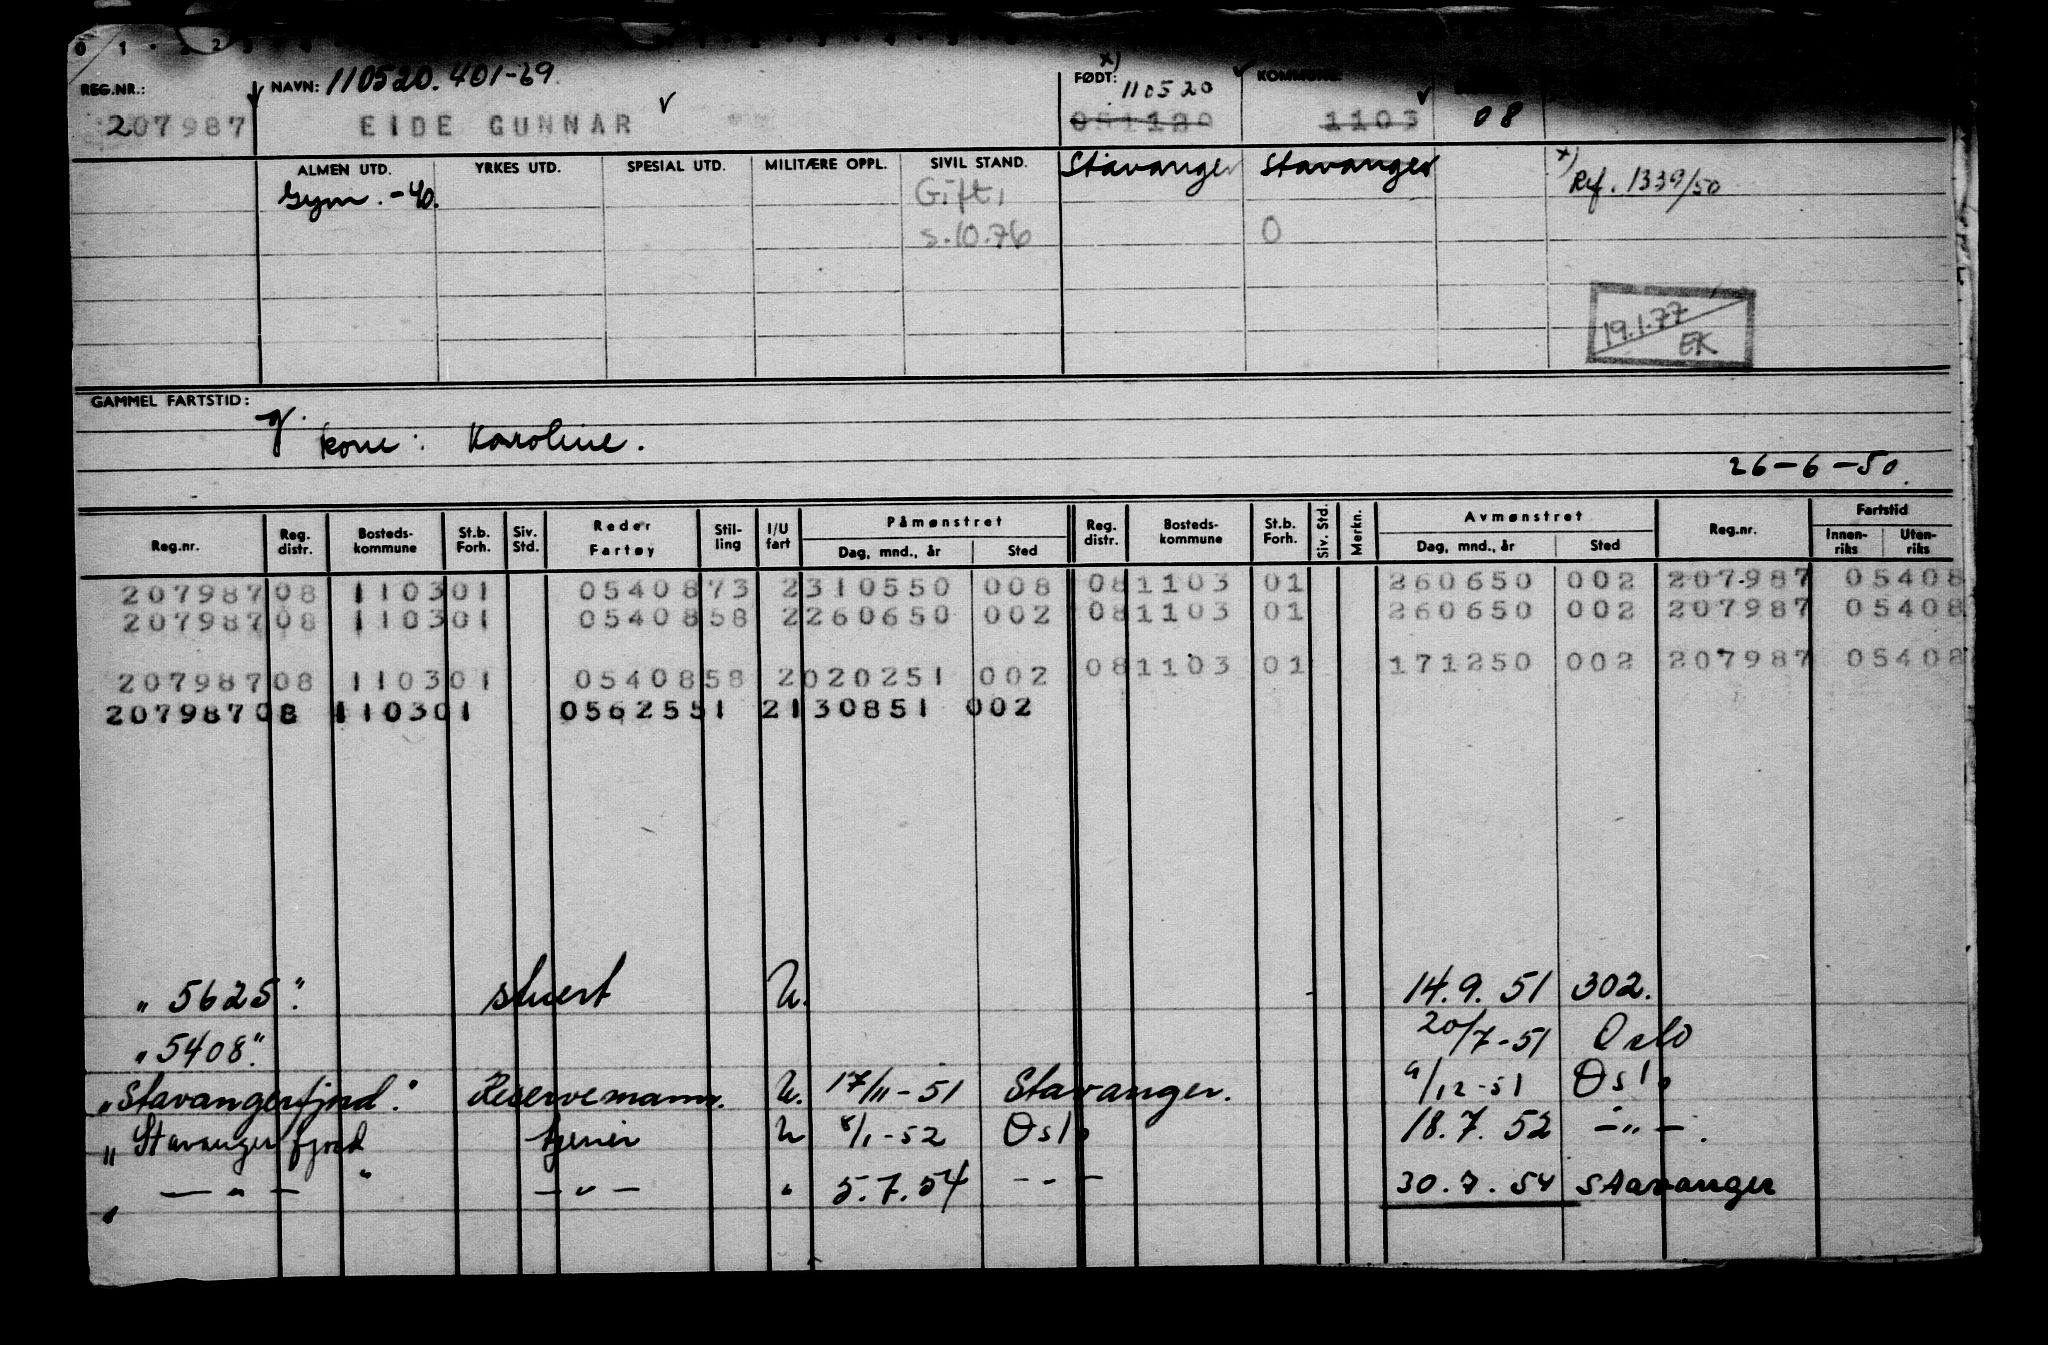 REG.NR.: NAVN: 110520.401-69 FØDT: x) 110520 KOMMUNE:
207987 EIDE GUNNAR 081120 1103 08
ALMEN UTD. YRKES UTD. SPESIAL UTD. MILITÆRE OPPL. SIVIL STAND. Stavanger Stavanger x) Ref. 1339/50
Gym. -40. Gift,
s.10.76 0
19.1.77
EK
GAMMEL FARTSTID:
kone: Karoline.
26-6-50.
Reg.nr. Reg. distr. Bosteds-kommune St.b. Forh. Siv. Std. Reder Fartøy Stil-ling I/U fart Påmønstret Dag, mnd., år Sted Reg. distr. Bosteds-kommune St.b. Forh. Siv. Std. Merkn. Avmønstret Dag, mnd., år Sted Reg.nr. Fartstid Innen-riks Uten-riks
207987 08 1103 01 05408 73 2 310550 008 08 1103 01 260650 002 207987 05408
207987 08 1103 01 05408 58 2 260650 002 08 1103 01 260650 002 207987 05408
08 1103 01 171250 002 207987 05408
207987 08 1103 01 05408 58 2 020251 002
207987 08 1103 01 05625 51 2 130851 002
"5625". stuert U. 14.9.51 302.
"5408". 20/7-51 Oslo
"Stavangerfjord". Reservemann. U. 17/11-51 Stavanger. /12-51 Oslo
"Stavangerfjord tjener U 8/1-52 Oslo 18.7.52 -"-.
" -"- " -"- " 5.7.54 -"- 30.7.54 Stavanger